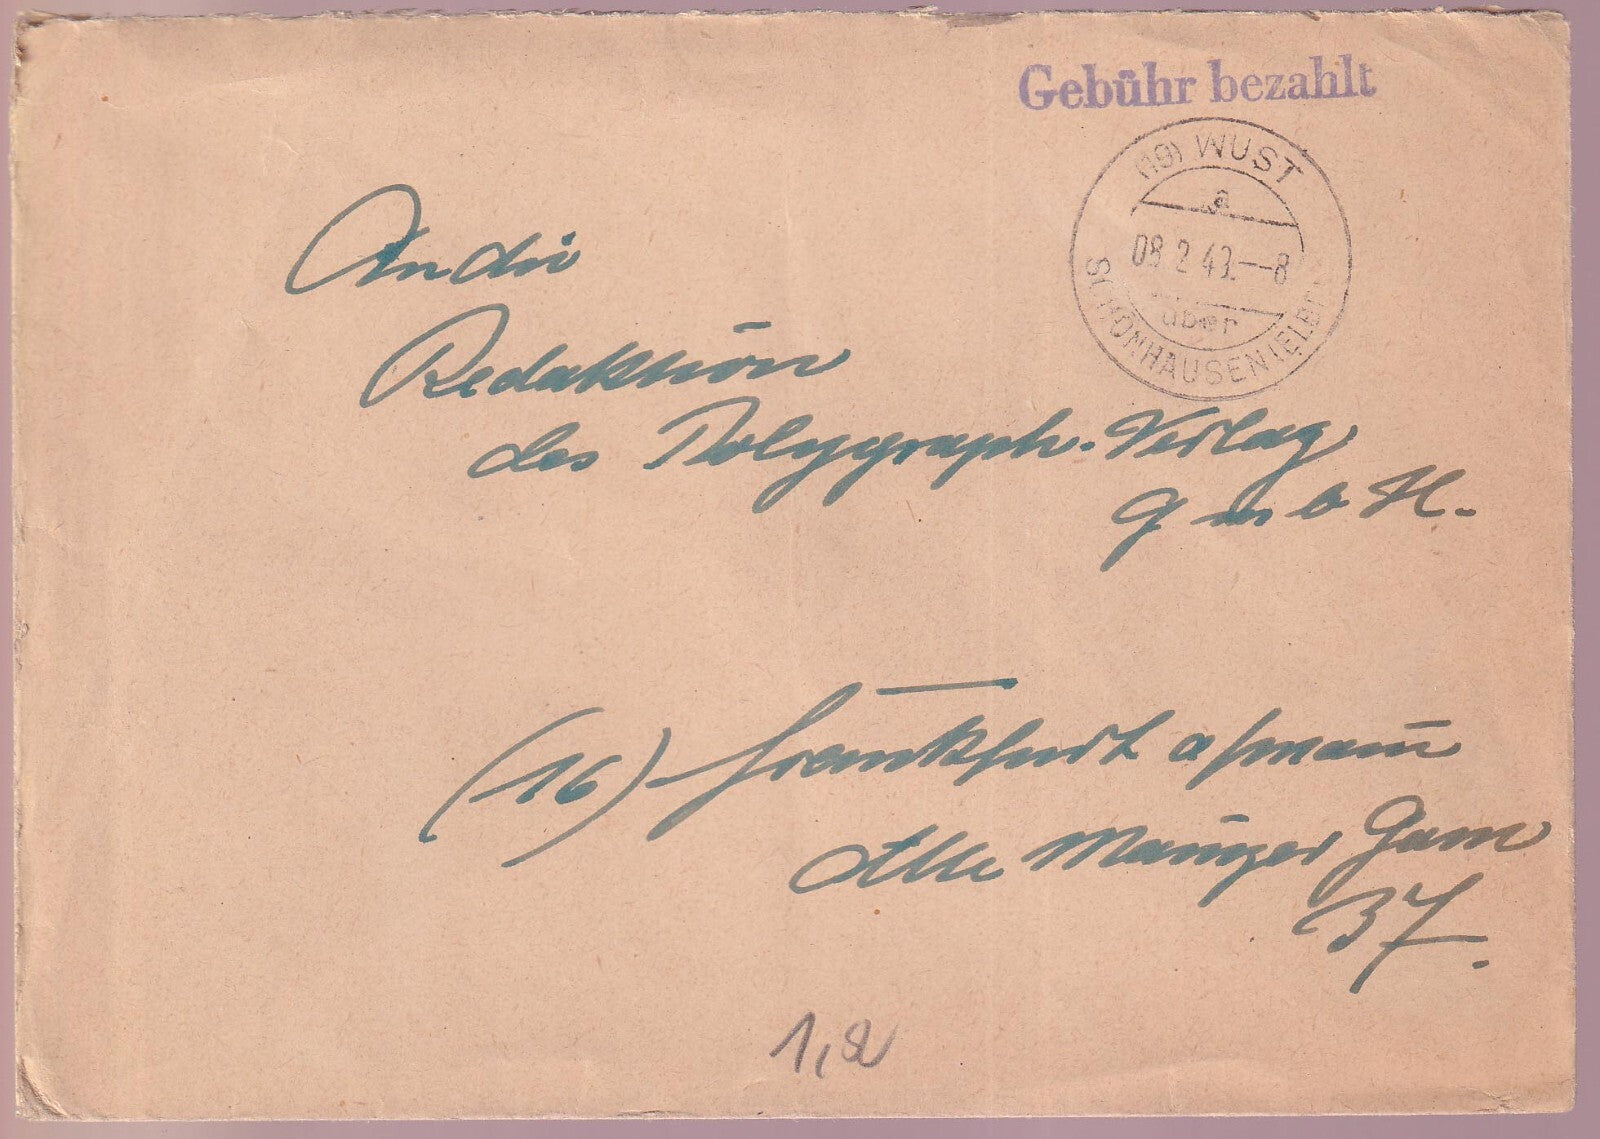 Gebühr bezahlt
(19) WUST
a
08.2.49.--8
über
SCHÖNHAUSEN (ELBE)
An die
Redaktion
des Polygraph-Verlag
GmbH.
(16) Frankfurt a/Main
Alte Mainzer Gasse
37.
1,2